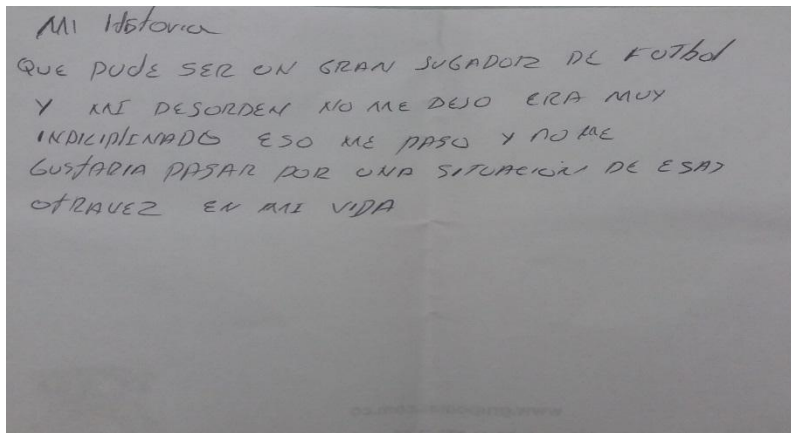 MI Historia
QUE PUDE SER UN GRAN JUGADOR DE FUTbol
Y MI DESORDEN NO ME DEJO ERA MUY
INDICIPLINADO ESO ME PASO Y NO ME
GUSTARIA PASAR POR UNA SITUACION DE ESAS
OTRAVEZ EN MI VIDA